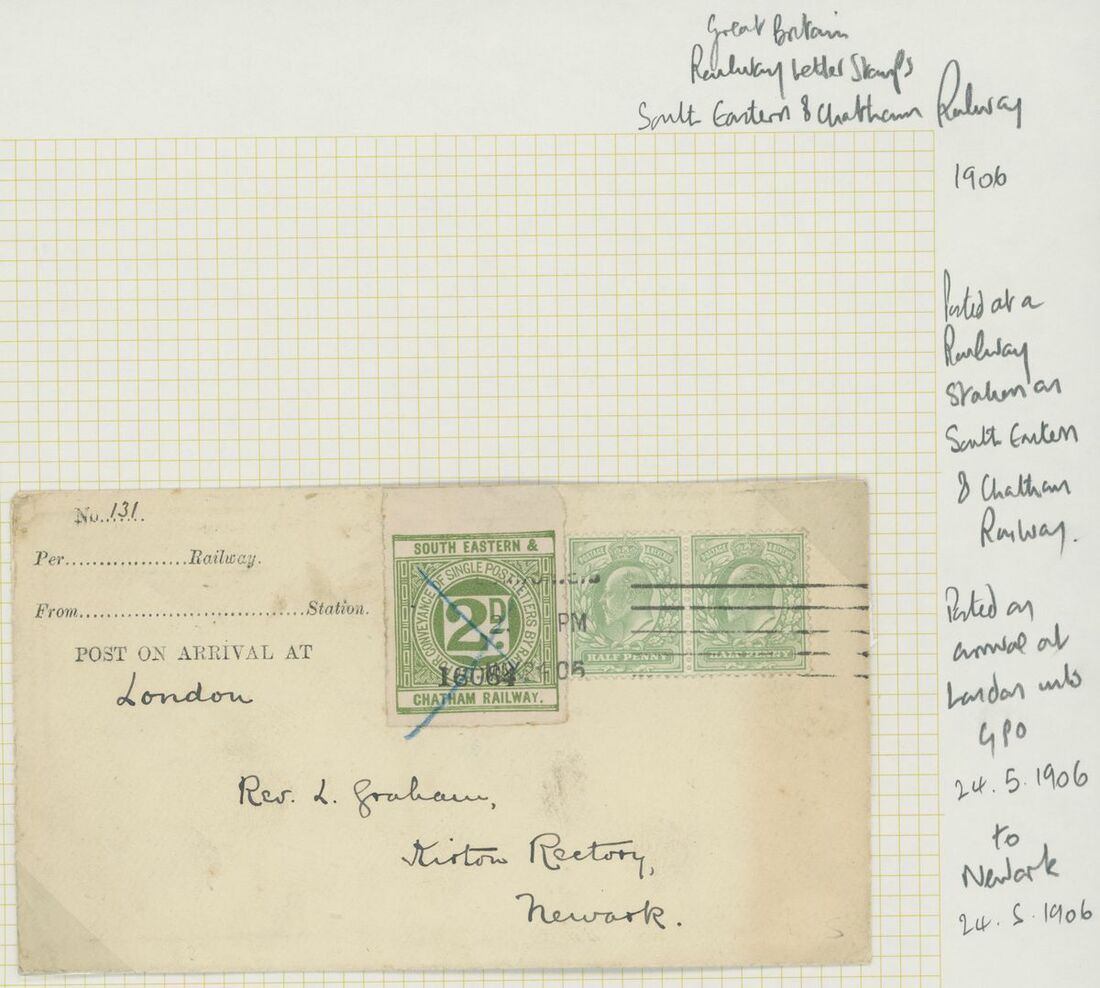 Great Britain
Railway Letter Stamps
South Eastern & Chatham Railway
1906
Posted at a
Railway
Station on
South Eastern
& Chatham
Railway.
Posted on
arrival at
London into
GPO
24.5.1906
to
Newark
24.5.1906
No. 131
Per.................Railway.
From..............................Station.
POST ON ARRIVAL AT
London
SOUTH EASTERN &
CONVEYANCE OF SINGLE POST LETTERS BY RAILWAY
2D
CHATHAM RAILWAY.
PM
HALF PENNY
HALF PENNY
Rev. L. Graham,
Kirton Rectory,
Newark.